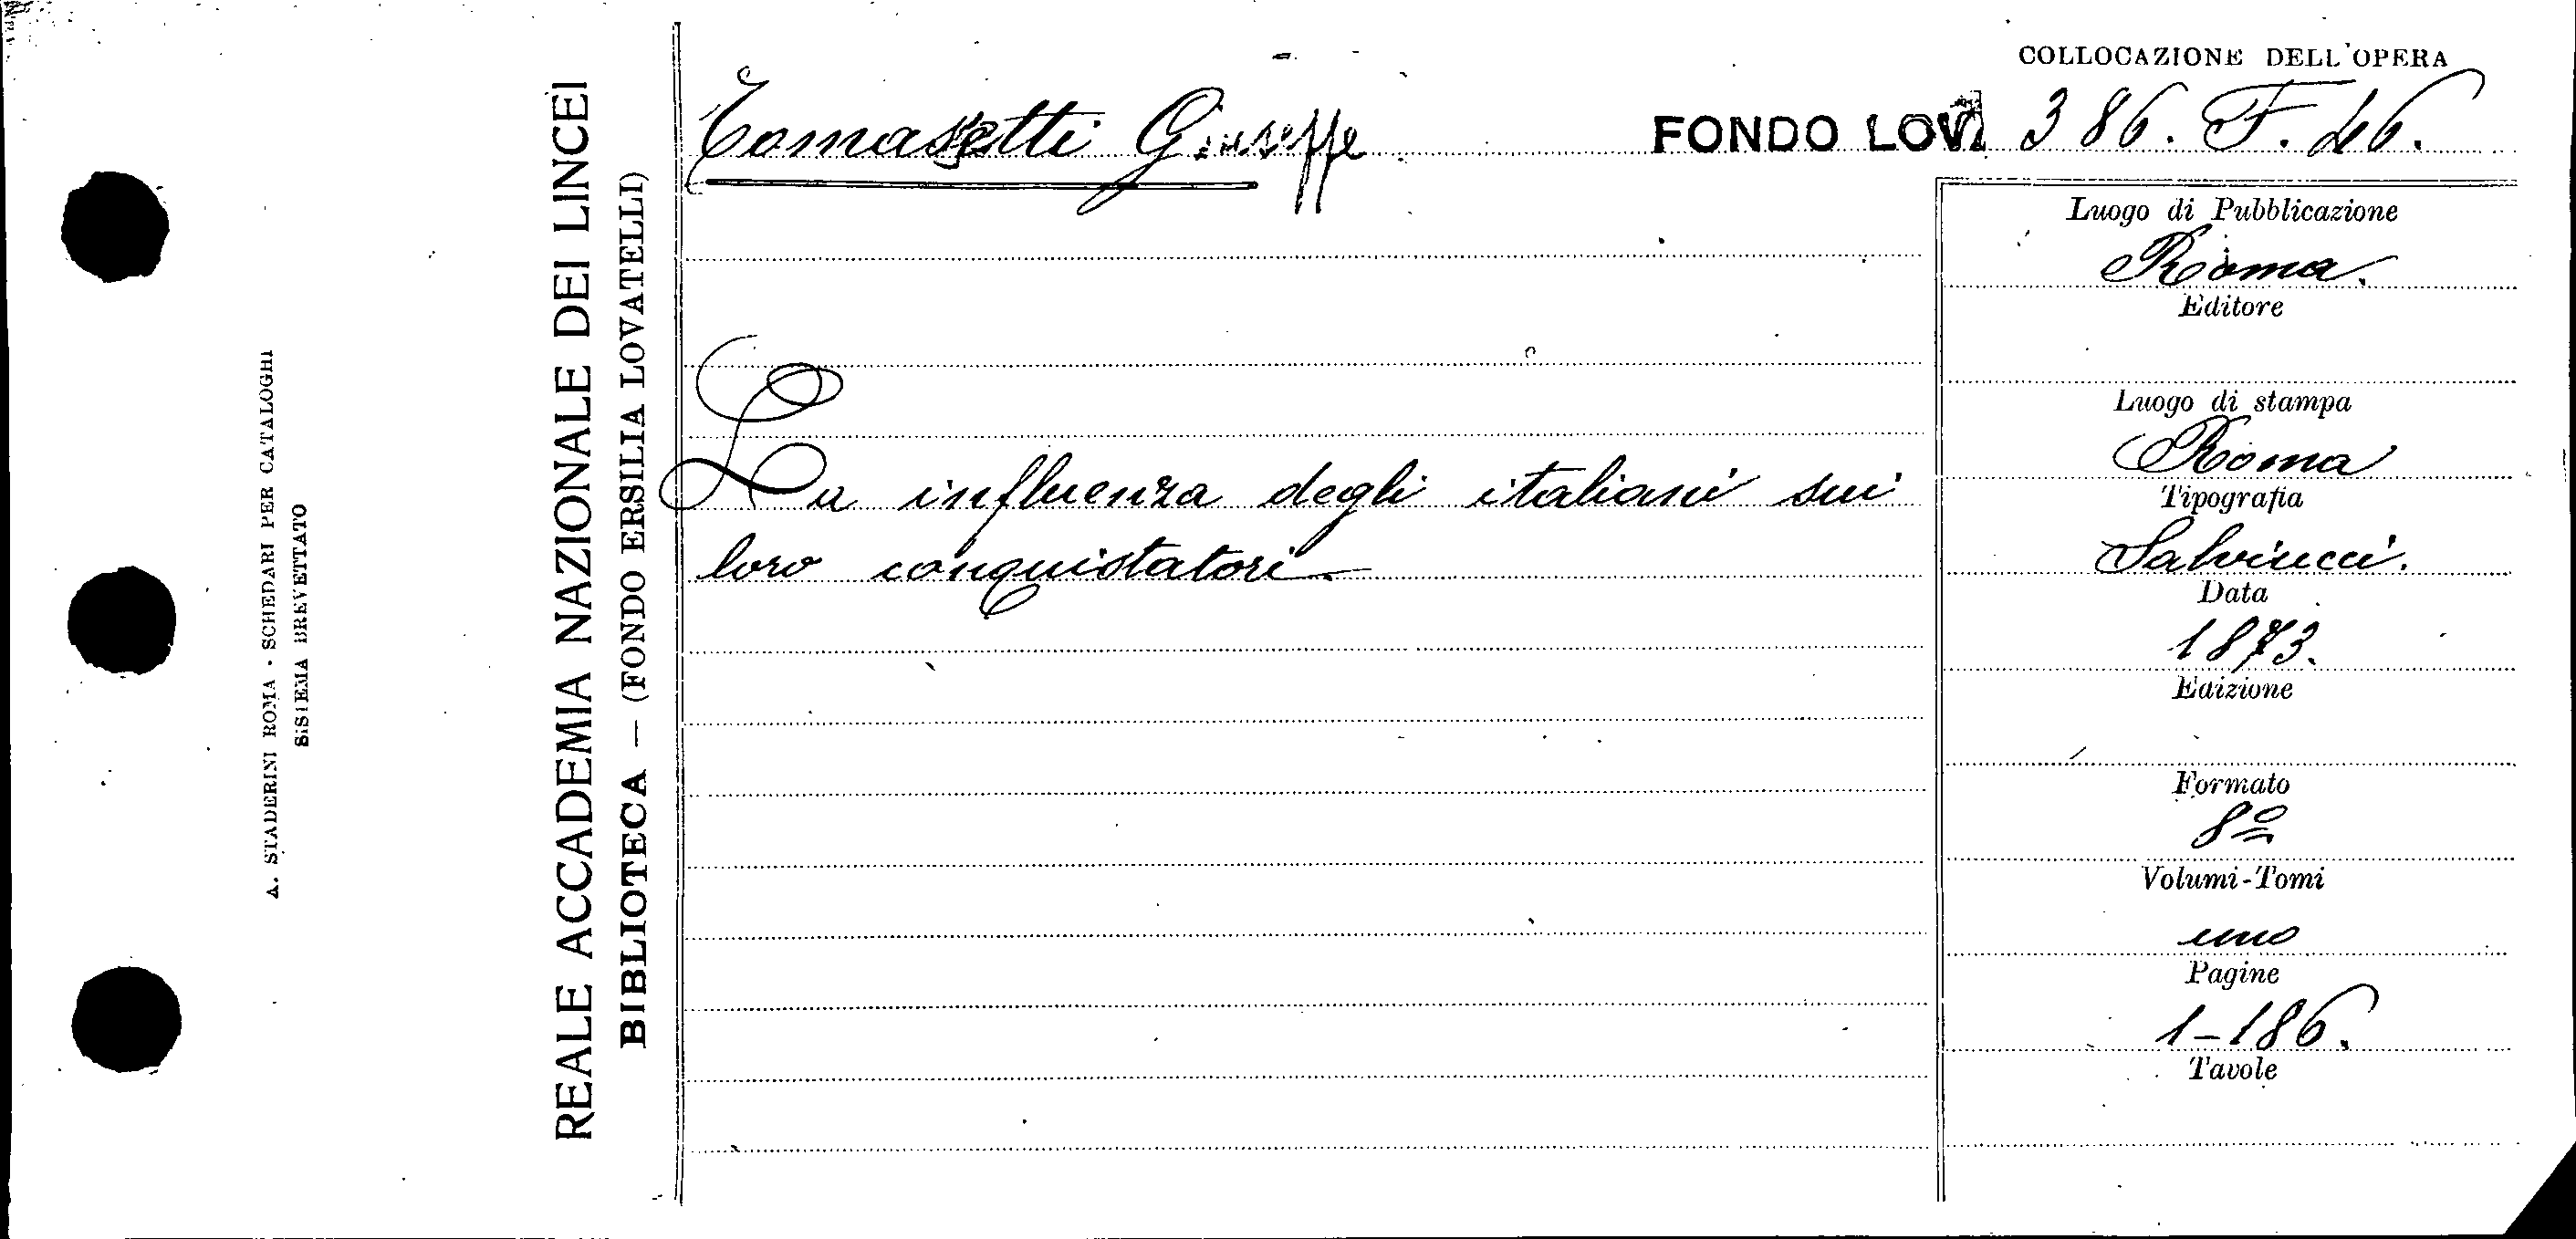 A. STADERINI ROMA - SCHEDARI PER CATALOGHI
SISTEMA BREVETTATO
REALE ACCADEMIA NAZIONALE DEI LINCEI
BIBLIOTECA — (FONDO ERSILIA LOVATELLI)
COLLOCAZIONE DELL'OPERA
Tomasetti Giuseppe
FONDO LOV. 386. F. 46.
La influenza degli italiani sui
loro conquistatori.
Luogo di Pubblicazione
Roma.
Editore
Luogo di stampa
Roma
Tipografia
Salviucci.
Data
1873.
Edizione
Formato
8º
Volumi-Tomi
uno
Pagine
1-186.
Tavole